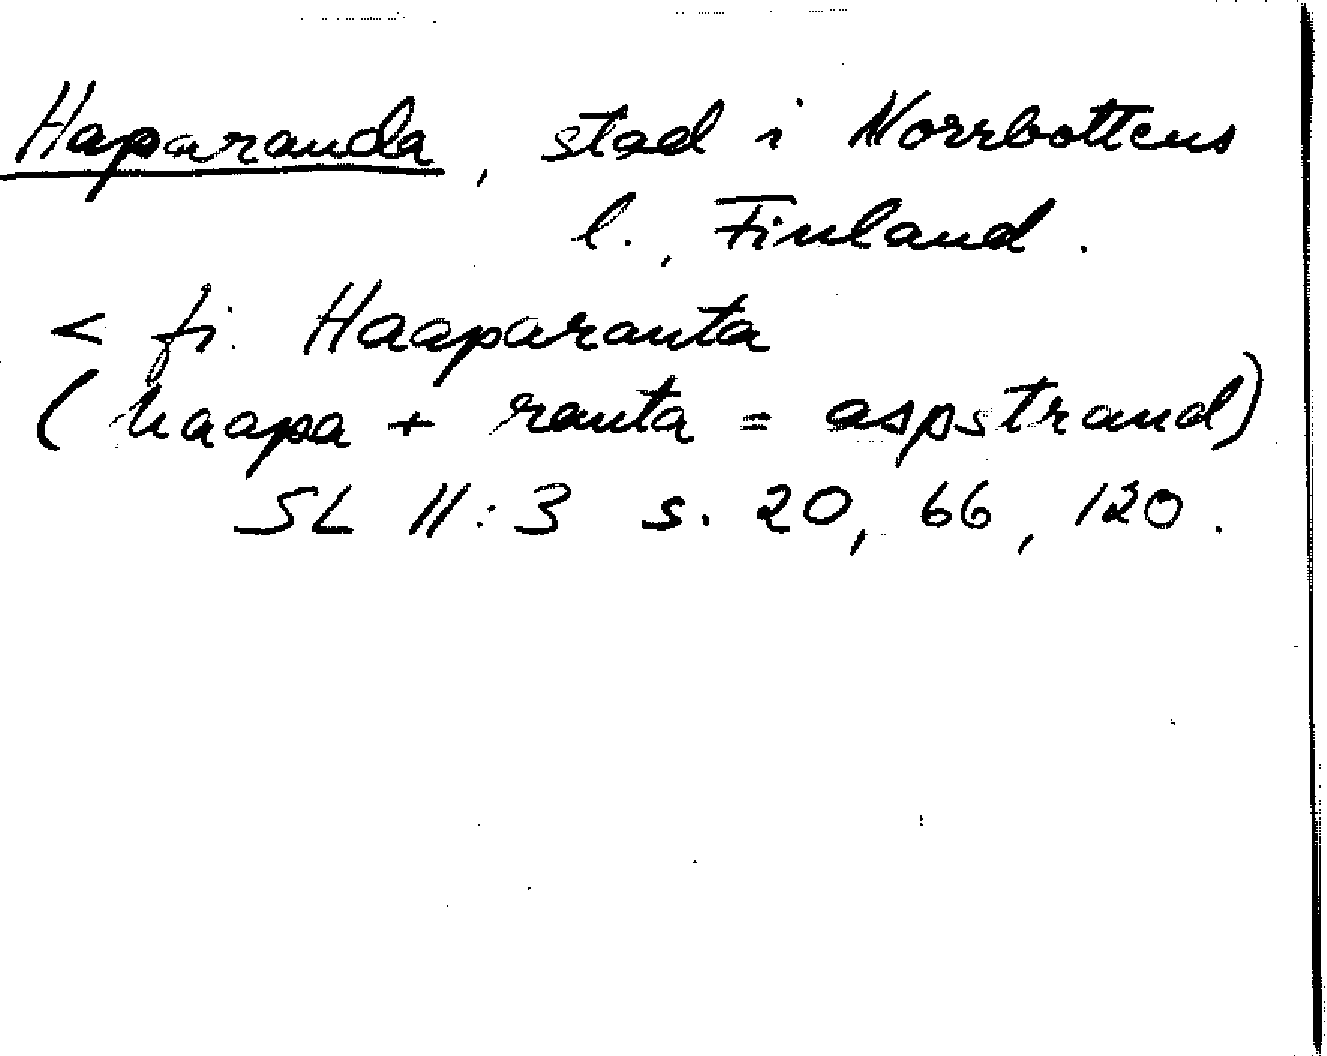 Haparanda, stad i Norrbottens
l., Finland.
< fi. Haaparanta
(haapa + ranta = aspstrand)
SL II:3 s. 20, 66, 120.